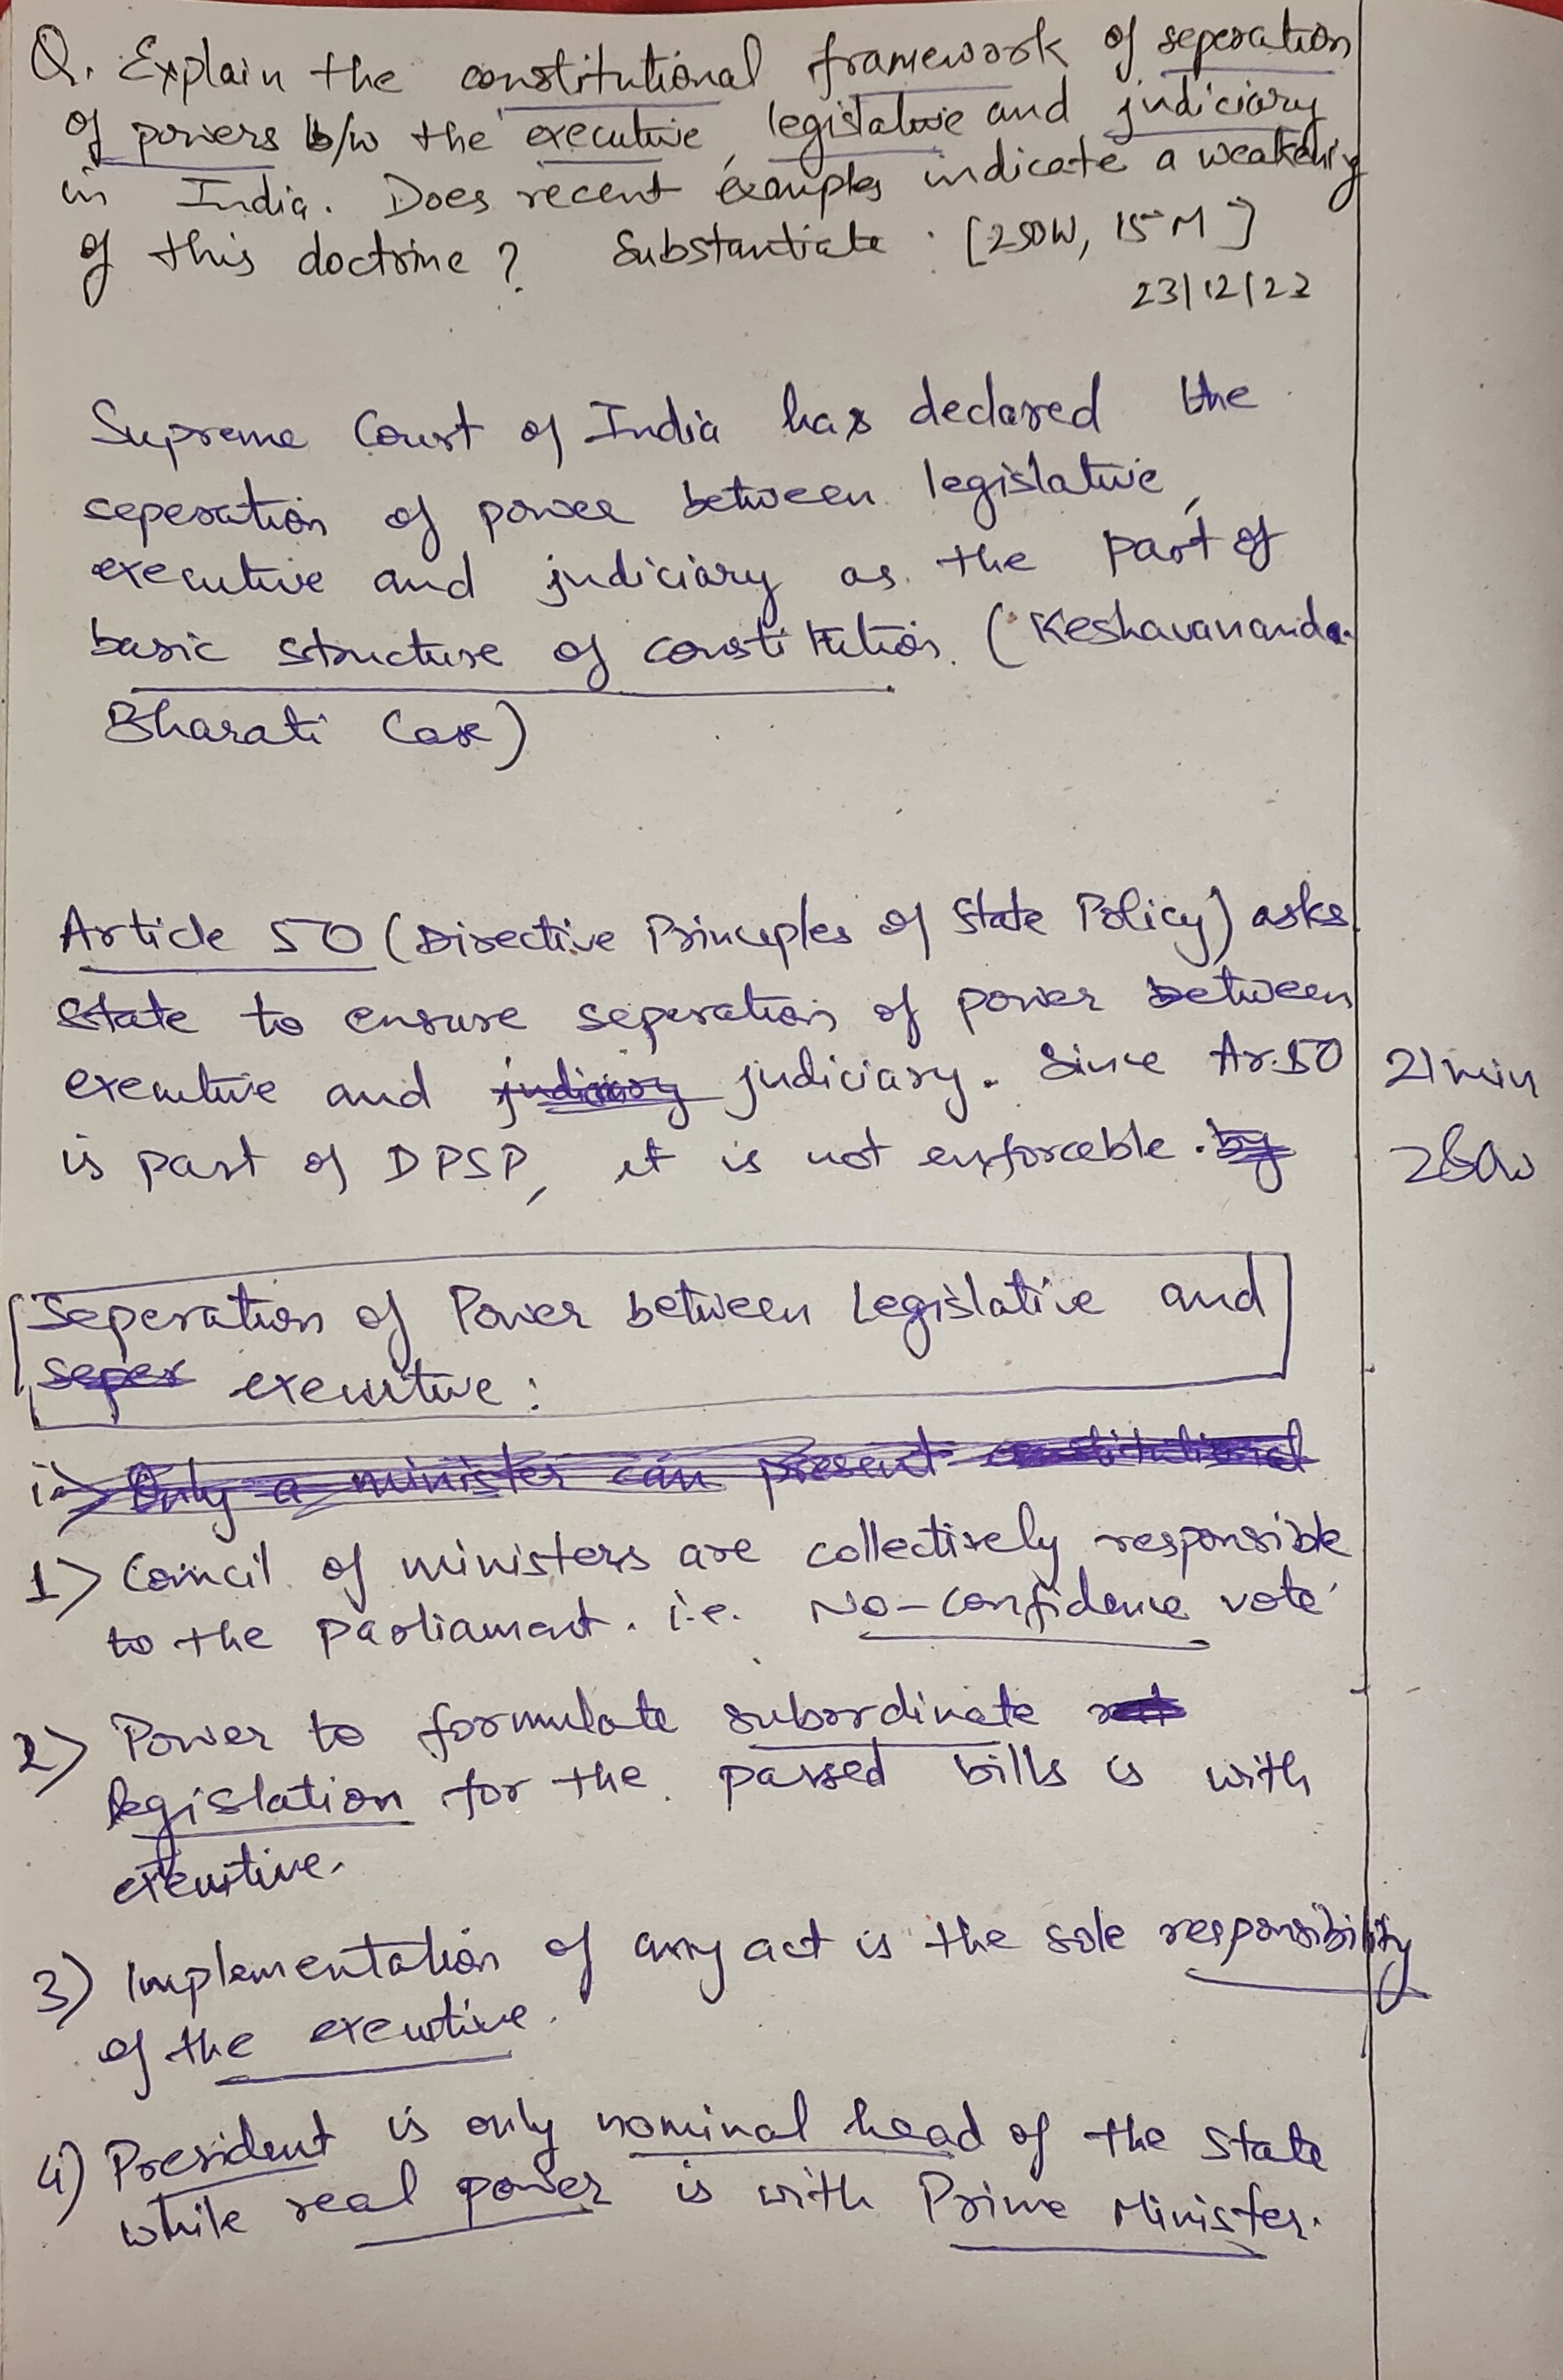 Q. Explain the constitutional framework of seperation
of powers b/w the executive, legislative and judiciary
in India. Does recent examples indicate a weakening
of this doctrine? Substantiate. [250W, 15M]
23/12/22
Supreme Court of India has declared the
seperation of power between legislative,
executive and judiciary as the part of
basic structure of constitution. (Keshavananda
Bharati Case)
Article 50 (Directive Principles of State Policy) asks
State to ensure seperation of power between
executive and judiciary judiciary. Since Ar.50
21 min
is part of DPSP, it is not enforceable. by
280w
Seperation of Power between Legislative and
seper executive:
i> Only a minister can present constitutional
1> Council of ministers are collectively responsible
to the parliament. i.e. No-confidence vote
2> Power to formulate subordinate
legislation for the passed bills is with
executive.
3) Implementation of any act is the sole responsibility
of the executive.
4) President is only nominal head of the State
while real power is with Prime Minister.